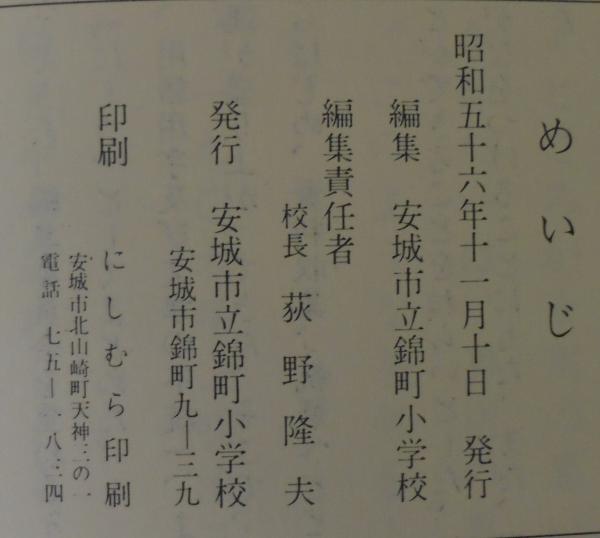 めいじ
昭和五十六年十一月十日 発行
編集 安城市立錦町小学校
編集責任者
校長 荻野隆夫
発行 安城市立錦町小学校
安城市錦町九―三九
印刷 にしむら印刷
安城市北山崎町天神三の一
電話 七五―一八三四